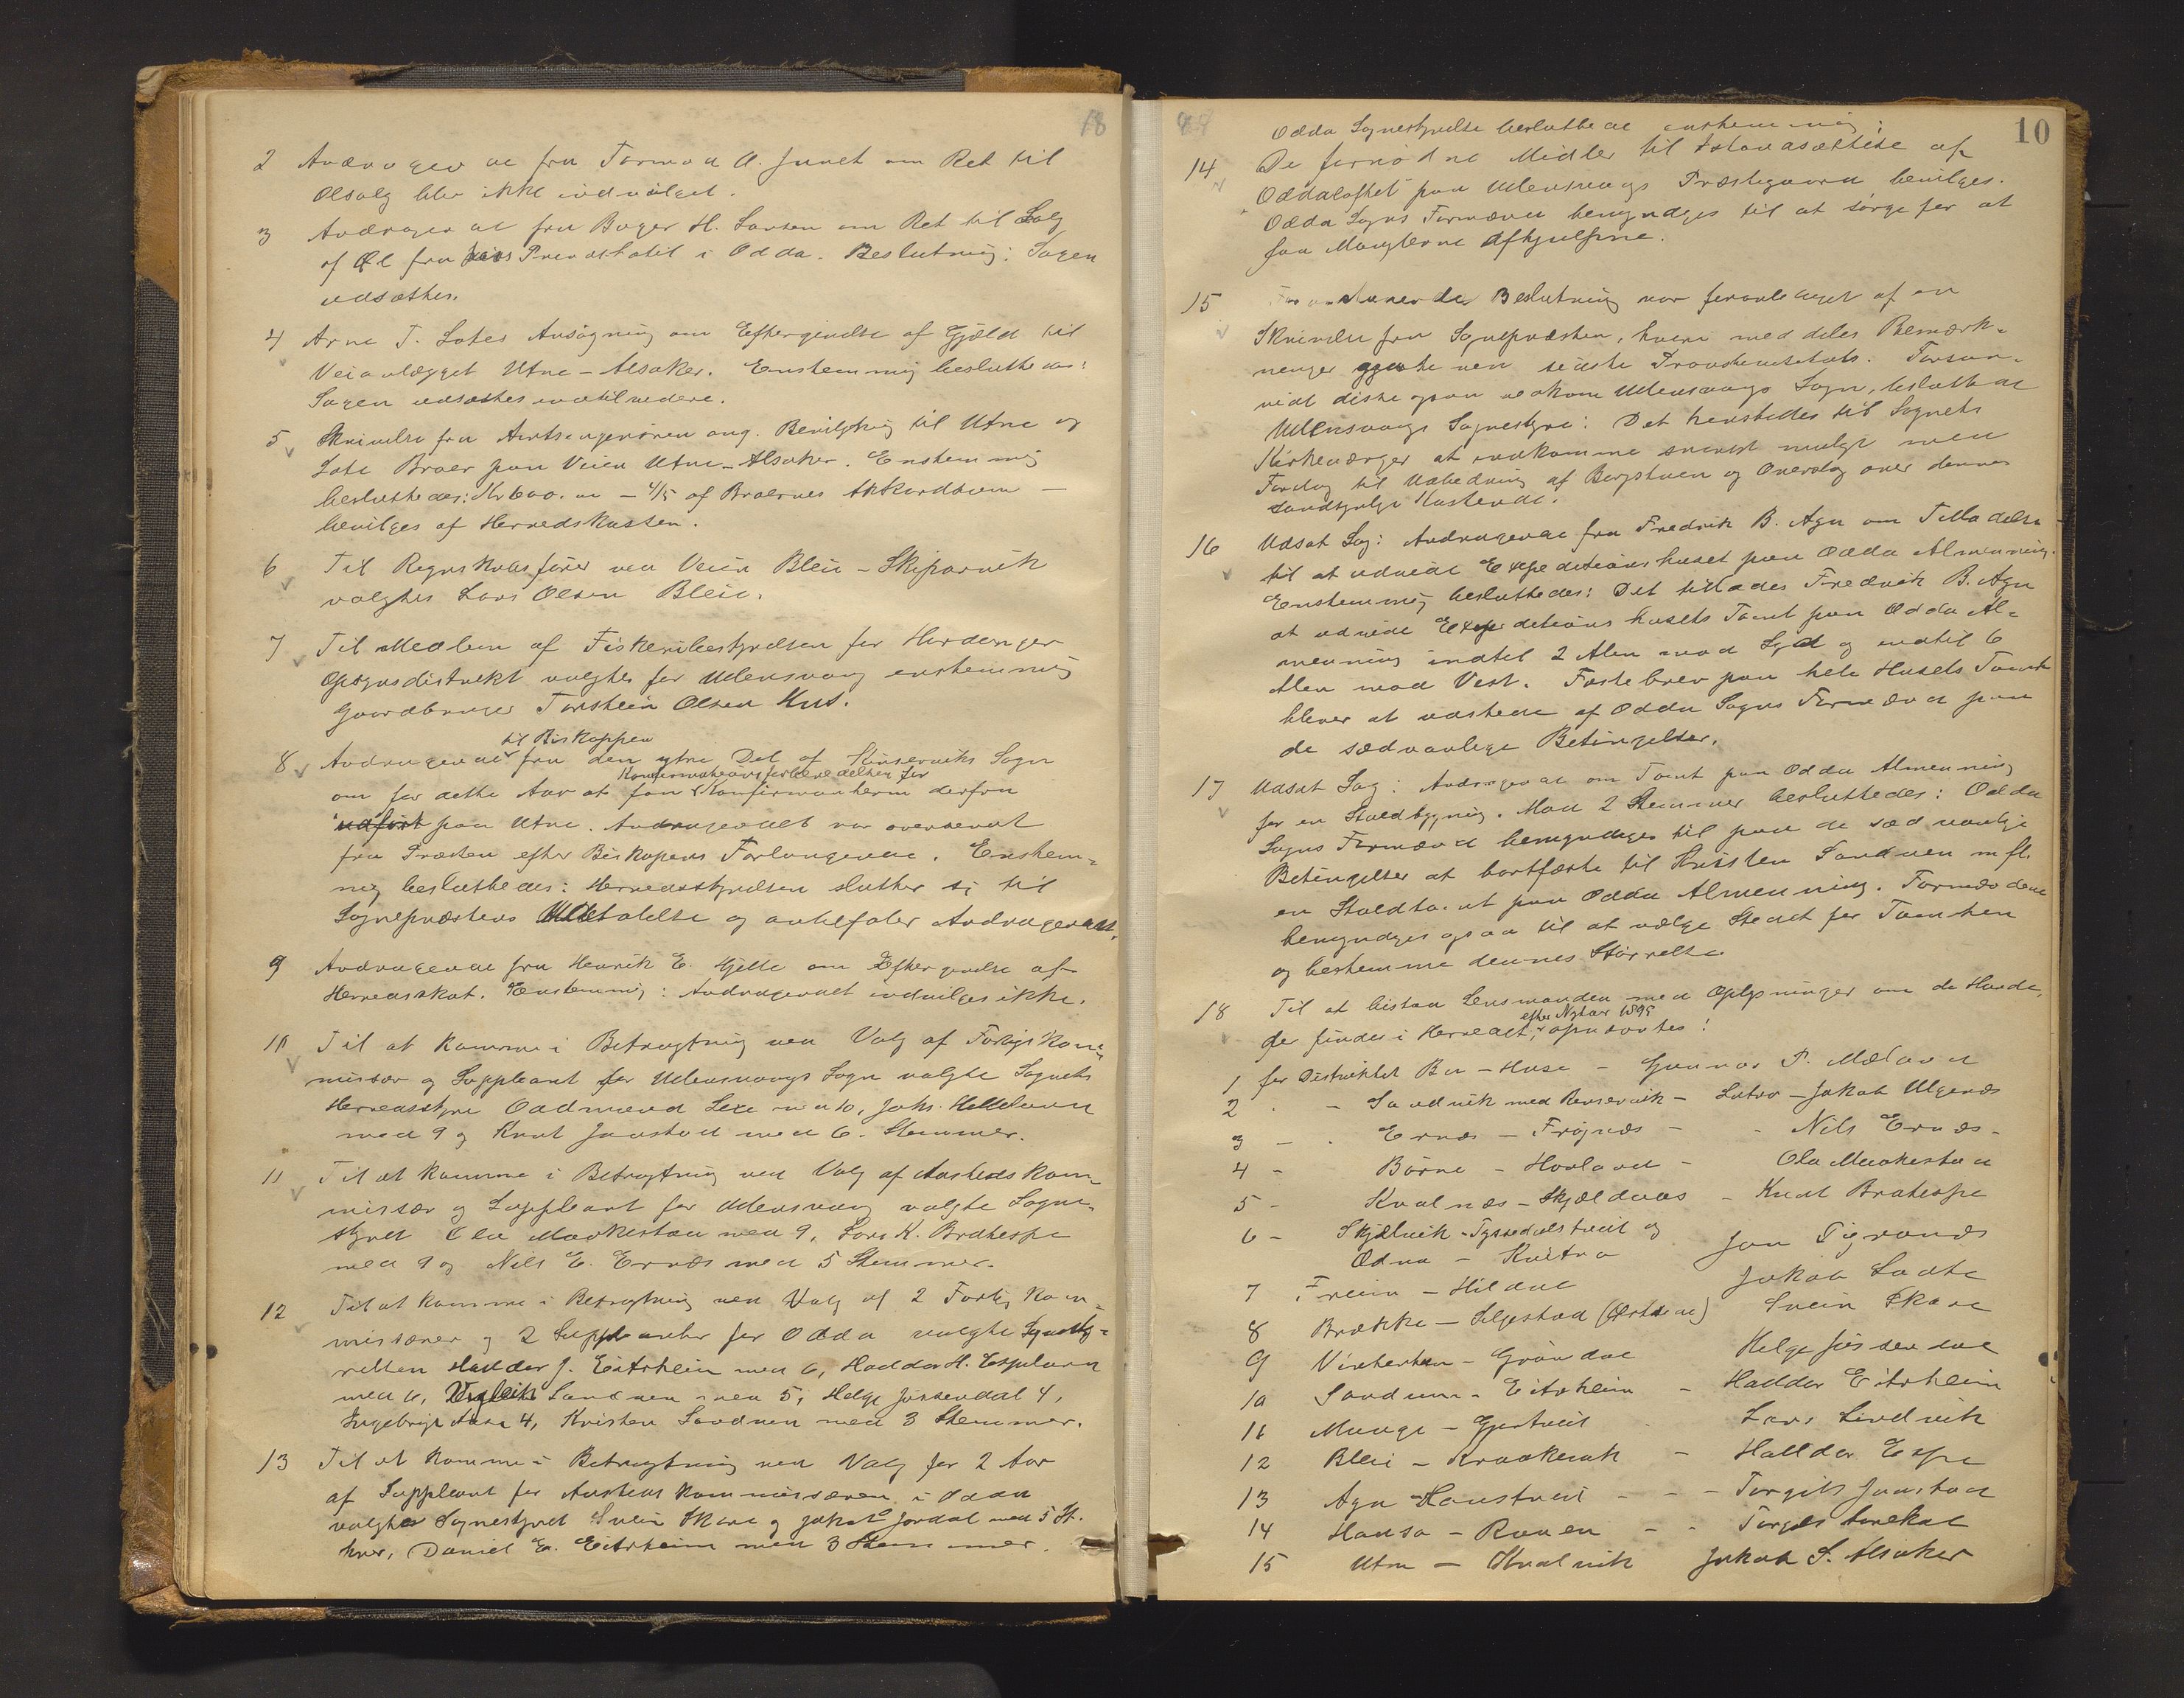 18
2 Andragende fra Tormod A. Junet om Ret til
Ølsalg blev ikke indvilget.
3 Andragende fra Bager H. Larsen om Ret til Salg
af Øl fra hans Privathotel i Odda. Beslutning: Sagen
udsættes.
4 Arne T. Lotes Ansøgning om Eftergivelse af Gjæld til
Veianlægget Utne - Alsaker. Enstemmig besluttedes:
Sagen udsættes indtil videre.
5 Skrivelse fra Amtsingeniøren ang. Bevilgning til Utne og
Lote Broer paa Veien Utne - Alsaker. Enstemmig
besluttedes: Kr 600.00 - 4/5 af Broernes Akkordsum -
bevilges af Herredskassen.
6 Til Regnskabsfører ved Veien Bleie - Skiparvik
valgtes Lars Olsen Bleie.
7 Til Medlem af Fiskeribestyrelsen for Hardanger
Opsynsdistrikt valgtes for Ullensvang enstemmig
Gaardbruger Torstein Olsen Hus.
til Biskoppen
8 Andragende fra den ytre Del af Kinserviks Sogn
Konfirmationsforberedelsen for
om for dette Aar at faa Konfirmanterne derfra
udført paa Utne. Andragendet var oversendt
fra Præsten efter Biskopens Forlangende. Enstem-
mig besluttedes: Herredsstyrelsen slutter si til
Sognepræstens Udtalelse og anbefaler Andragendet.
9 Andragende fra Henrik E. Hjelle om Eftergivelse af
Herredsskat. Enstemmig: Andragendet indvilges ikke.
10 Til at komme i Betragtning ved Valg af Forligskom-
missær og Suppleant for Ullensvangs Sogn valgte Sognets
Herredsstyre Oddmund Lexe med 10, Johs. Helleland
med 9 og Knut Jaastad med 6 Stemmer.
11 Til at komme i Betragtning ved Valg af Aastedskom-
missær og Suppleant for Ullensvang valgte Sogne-
styret Ola Maakestad med 9, Lars K. Bratespe
med 9 og Nils E. Ernæs med 5 Stemmer.
12 Til at komme i Betragtning ved Valg af 2 Forligskom-
missærer og 2 Suppleanter for Odda valgte Sognesty-
relsen Haldor J. Eitrheim med 6, Haldor H. Espeland
med 6, Vigleik Sandven med 5, Helge Jøsendal 4,
Ingebrigt Aase 4, Kristen Sandven med 3 Stemmer.
13 Til at komme i Betragtning ved Valg for 2 Aar
af Suppleant for Aasteds kommissæren i Odda
valgtes Sognestyret Svein Skare og Jakob Jordal med 5 St.
hver, Daniel E. Eitrheim med 3 Stemmer.
10
Odda Sognestyrelse besluttede enstemmig:
14 De fornødne Midler til Istandsættelse af
Oddaloftet paa Ullensvangs Præstegaard bevilges.
Odda Sogns Formænd bemyndiges til at sørge for at
faa Manglerne afhjulpne.
15 Beslutning var foranlediget af en
Skrivelse fra Sognepræsten, hvori meddeles Bemærk-
ninger gjorte ved sidste Provstevisitats. Forsaa-
vidt disse ogsaa vedkom Ullensvangs Sogn, besluttede
Ullensvangs Sognestyre: Det henstilles til Sognets
Kirkeværger at indkomme snarest muligt med
Forslag til Udbedring af Borgstuen og Overslag over dennes
sandsynlige Kostende.
16 Udsat Sag: Andragende fra Fredrik B. Aga om Tilladelse
til at udvide Expeditionshuset paa Odda Almenning.
Enstemmig besluttedes: Det tillades Fredrik B. Aga
at udvide Expeditionshusets Tomt paa Odda Al-
menning indtil 2 Alen mod Syd og indtil 6
Alen mod Vest. Fæstebrev paa hele Husets Tomt
bliver at udstede af Odda Sogns Formænd paa
de sædvanlige Betingelser.
17 Udsat Sag: Andragende om Tomt paa Odda Almenning
for en Staldbygning. Mod 2 Stemmer besluttedes: Odda
Sogns Formænd bemyndiges til paa de sædvanlige
Betingelser at bortfæste til Kristen Sandven m.fl.
en Staldtomt paa Odda Almenning. Formændene
bemyndiges ogsaa til at vælge Stedet for Tomten
og bestemme dennes Størrelse
18 Til at bistaa Lensmanden med Oplysninger om de Hunde,
efter Nytaar 1898
der findes i Herredet, opnævntes:
1 for Distriktet Bu - Huse - Gunnar P. Mæland
2 - Sandvik med Kinservik - Lutro - Jakob Ulgenæs
3 - Ernæs - Frøynæs - Nils Ernæs
4 - Børve - Hovland - Ola Maakestad
5 - Kvalnæs - Skjeldaas - Knut Bratespe
6 - Skjelvik - Tyssedalstveit og
Odna - Kvitno Jon Digranæs
7 Freim - Hildal Jakob Laate
8 Brække - Seljestad (Østside) Svein Skare
9 Vintertun - Grøndal Helge Jøsendal
10 Sandven - Eitrheim - Haldor Eitrheim
11 Mauge - Gjertveit Lars Lindvik
12 Bleie - Kraakevik - Halldor Espe
13 Aga - Haustveit - Torgils Jaastad
14 Hansa - Raaen - Torgils Arekol
15 Utne - Kvalvik Jakob S. Alsaker